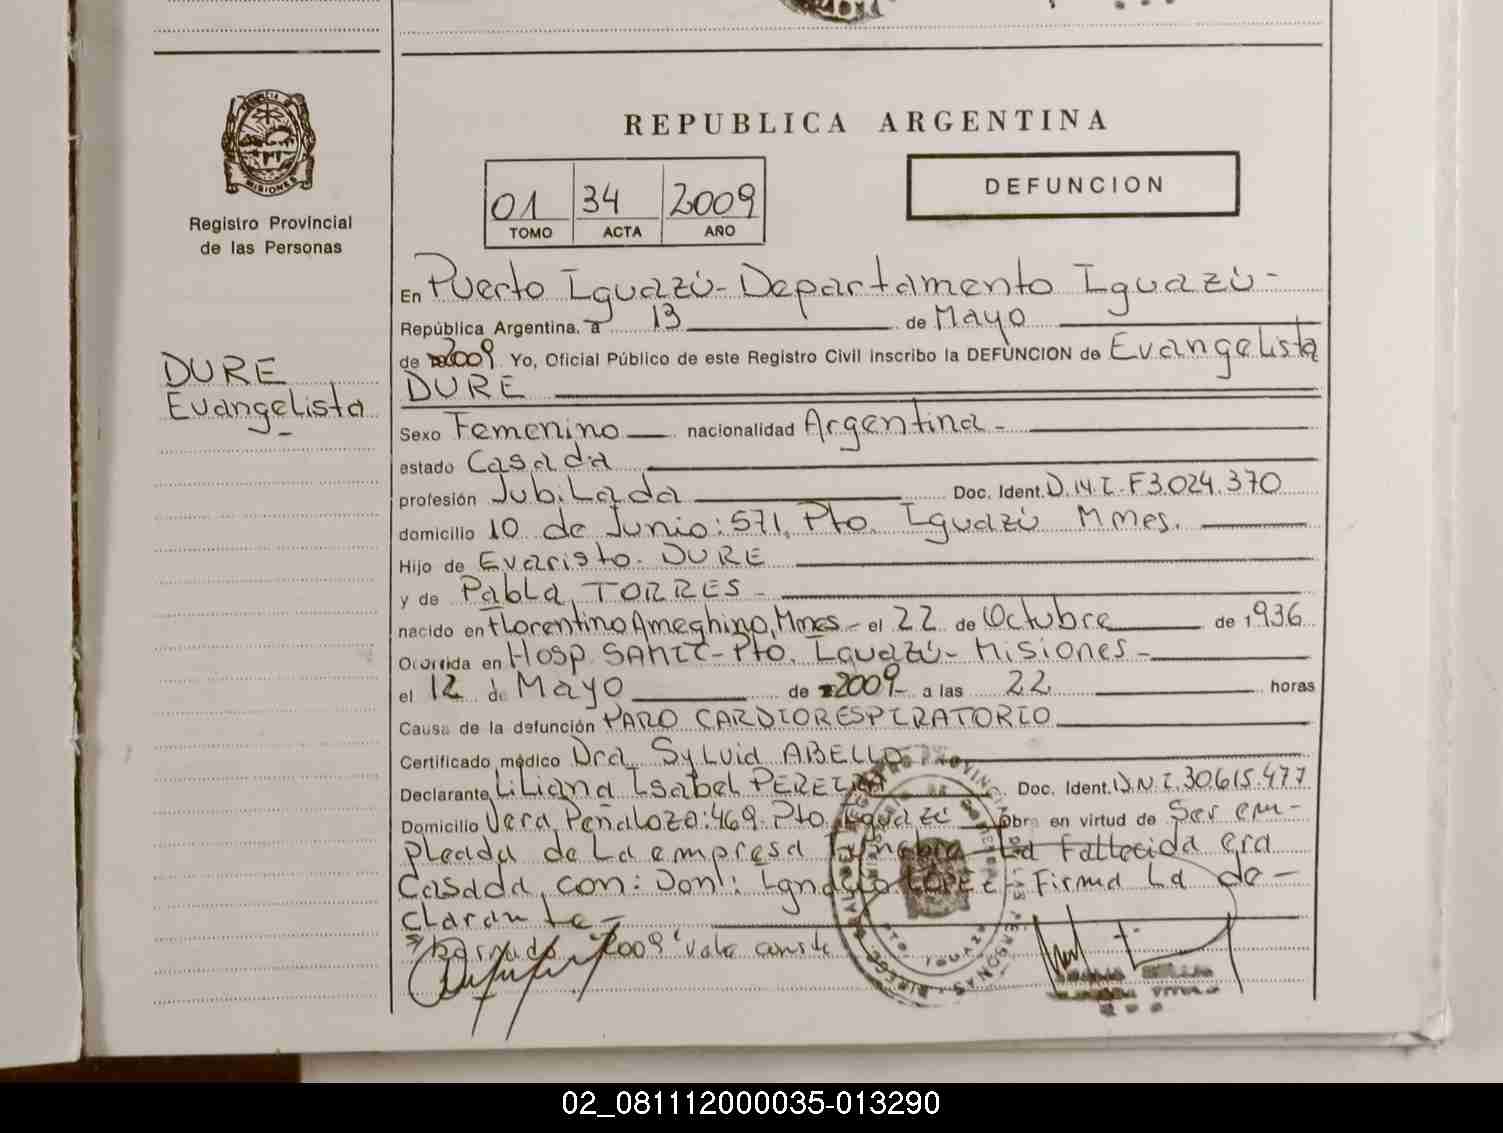 REPUBLICA ARGENTINA
PROVINCIA D MISIONES
Registro Provincial
de las Personas
01 34 2009
TOMO ACTA AÑO
DEFUNCION
DURE
Evangelista
En Puerto Iguazú - Departamento Iguazú -
República Argentina, a 13 de Mayo
de 2009 Yo, Oficial Público de este Registro Civil inscribo la DEFUNCION de Evangelista
DURE
Sexo Femenino nacionalidad Argentina -
estado Casada
profesión Jubilada Doc. Ident. D.N.I. F3.024.370
domicilio 10 de Junio: 571, Pto. Iguazú Mnes.
Hijo de Evaristo DURE
y de Pabla TORRES -
nacido en Florentino Ameghino, Mnes - el 22 de Octubre de 1936
Ocurrida en Hosp. SAMIC - Pto. Iguazú - Misiones -
el 12 de Mayo de 2009 - a las 22 horas
Causa de la defunción PARO CARDIORESPIRATORIO
Certificado médico Dra. Sylvia ABELLO
Declarante Liliana Isabel Doc. Ident. D.N.I. 30.615.477
Domicilio Vera Peñaloza: 469 - Pto. Iguazú Obra en virtud de Ser em-
pleada de la empresa Fúnebre La Fallecida era
Casada con: Don: Ignacio LOPEZ - Firma la de-
clarante -
"2009" Vale conste
02_081112000035-013290